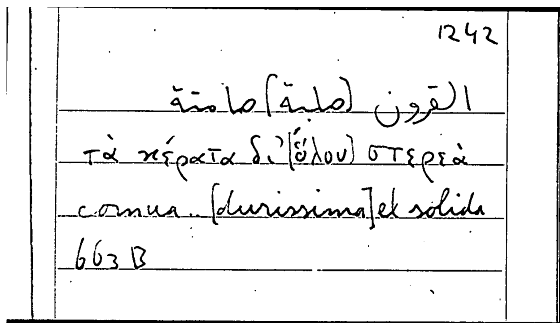 1242
القرون (صلبة) صامتة
τὰ κέρατα δι' (ὅλου) στερεὰ
cornua. [durissima] et solida
663 B